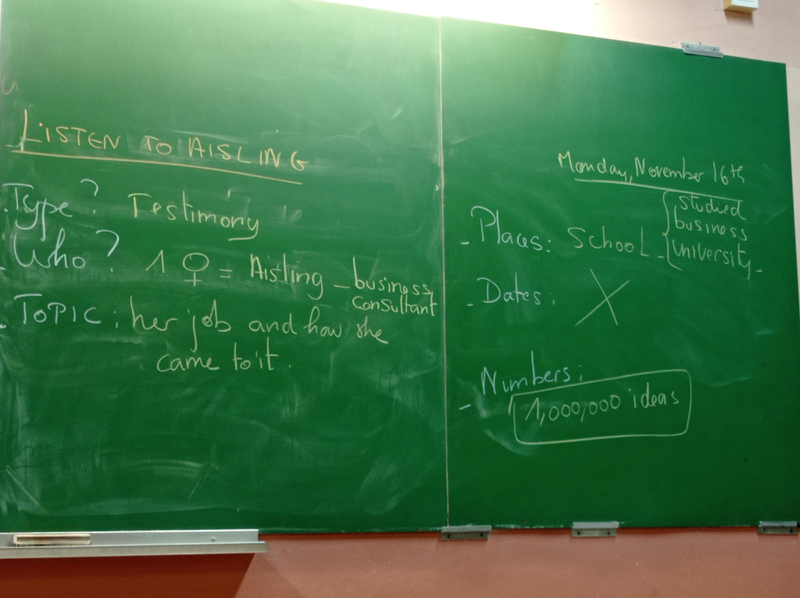 LISTEN TO AISLING
. Type? Testimony
- Who? 1 ♀ = Aisling _ business
consultant
- TOPIC: her job and how she
came to it.
Monday, November 16th
- Places: SCHOOL - { studied
business
university -
- Dates: X
- Numbers:
1,000,000 ideas